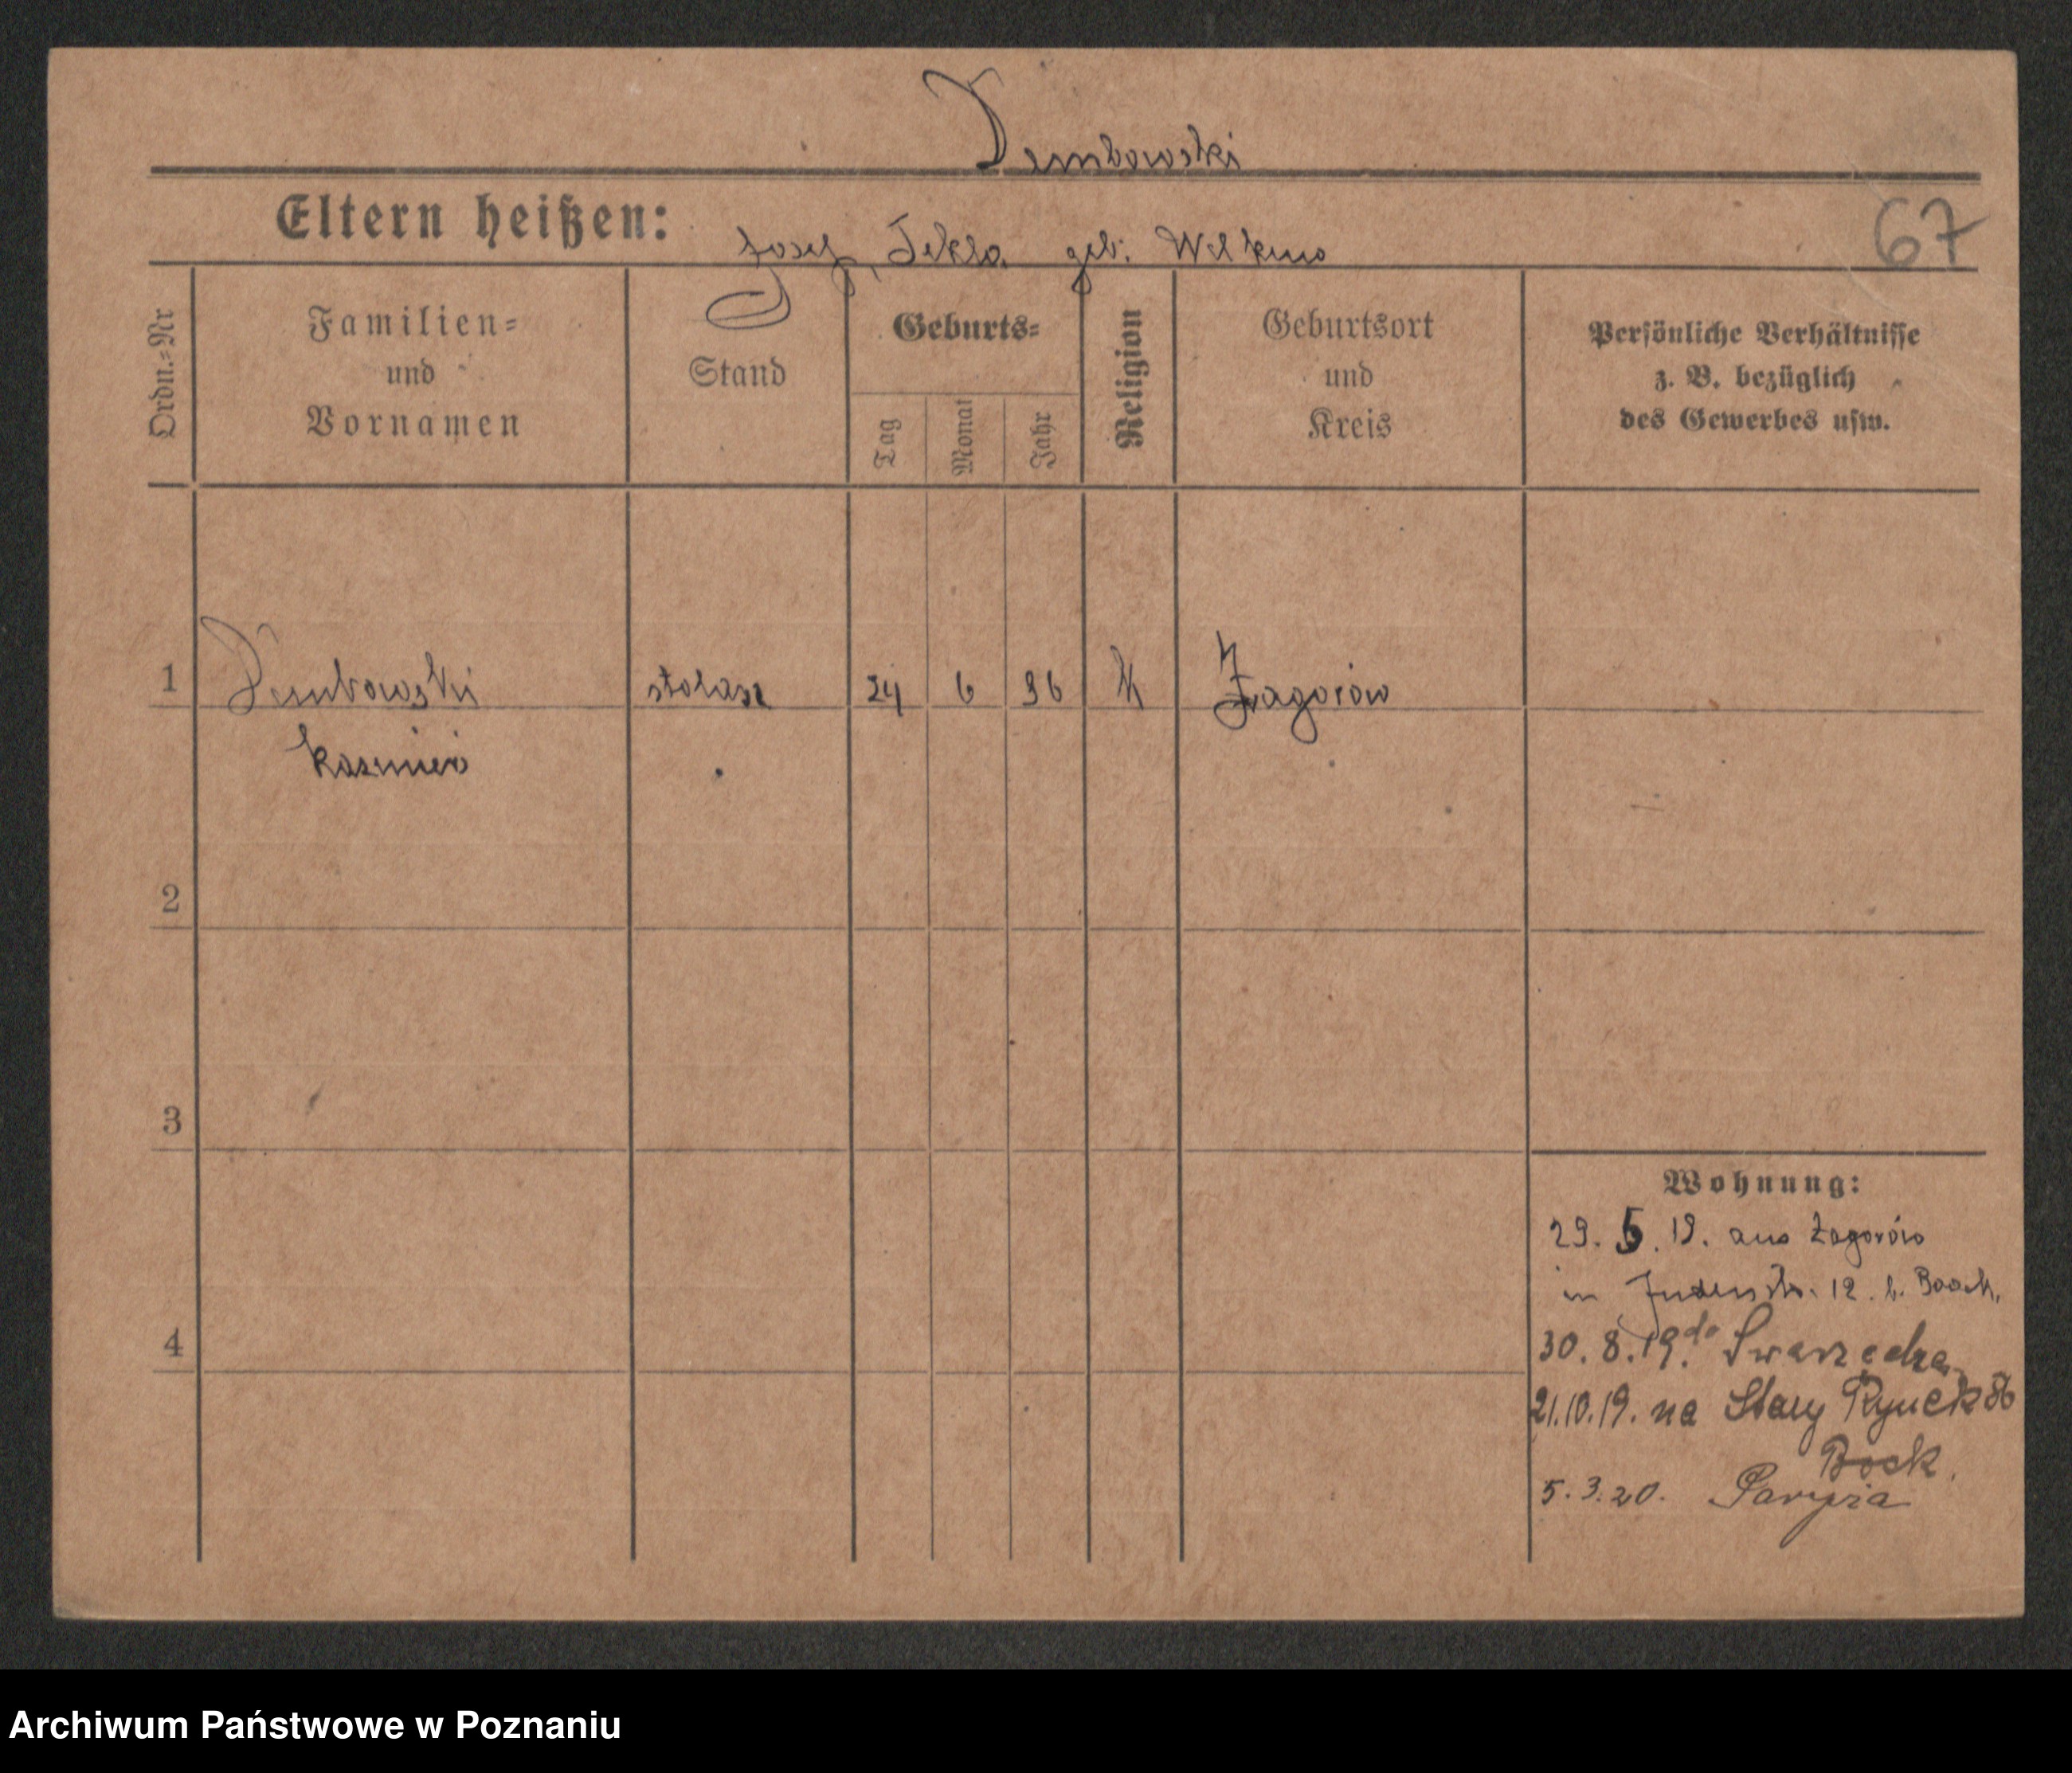 Dembowski
Eltern heißen: Josef, Tekla geb:
67
Ordn.-Nr
Familien-
und
Vornamen
Stand
Geburts-
Tag
Monat
Jahr
Religion
Geburtsort
und
Kreis
Persönliche Verhältnisse
z. B. bezüglich
des Gewerbes usw.
1 Dembowski stolarz 24 6 96 K Zagorów
Kazimier
2
3
4
Wohnung:
29. 5. 19. aus Zagorów
in Judenstr. 12. b.
30. 8. 19. do Swarzędza
21.10.19. na Stary Rynek 86
Bock.
5. 3. 20. Paryża
Archiwum Państwowe w Poznaniu